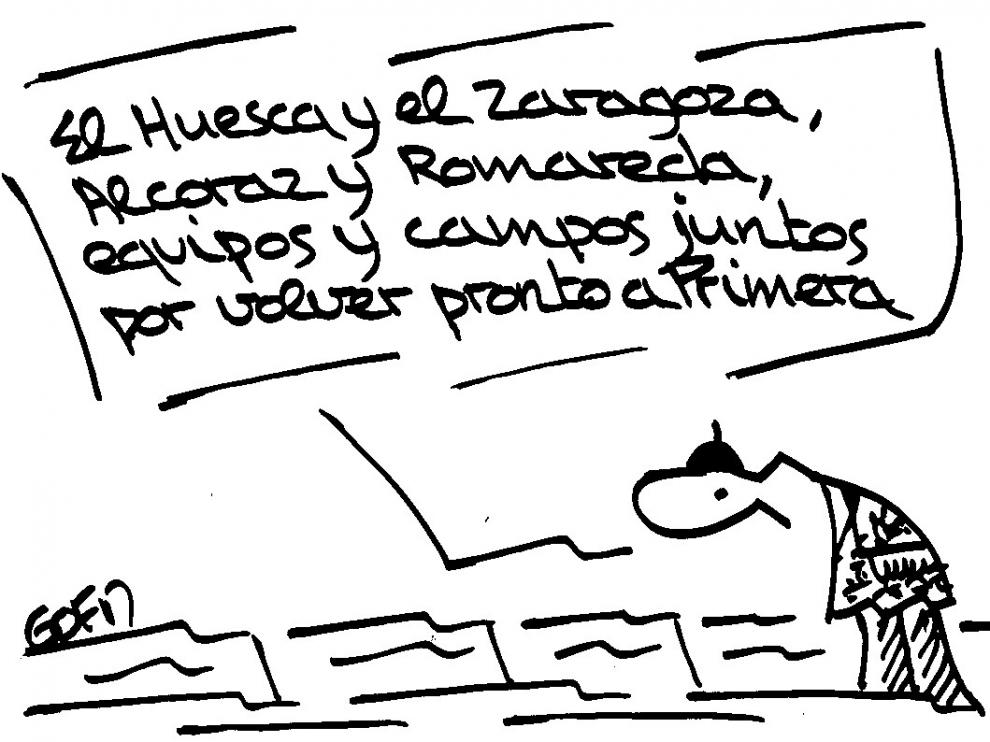 El Huesca y el Zaragoza,
Alcoraz y Romareda,
equipos y campos juntos
por volver pronto a Primera